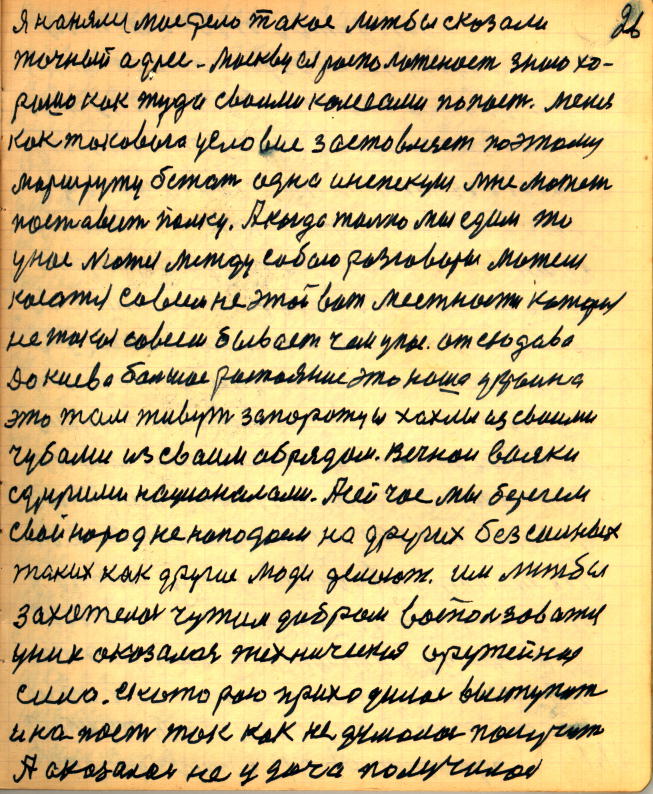 26
я наняли мое дело такое лишбы сказали
точный адрес. Москву и расположеност знаю хо-
рошо как туда своими колесами попаст. меня
как таковога условие заставляет поэтому
маршруту бегат одна инспекция мне может
поставит палку. А когда толко мы едим то
унас между собою разговоры
косатся совсем не этой вот местности которая
не такая совсем бывает чем у нас. отсюдава
до киева балшое растояние это наша украина
это там живут запорожцы хахлы из своими
чубами из своим обрядом. Вечнои вояки
сдругими националами. А сейчас мы берегем
свой народ не нападаем на других безсилных
таких как другие люди делают. им лишбы
захотелос чужим добром восползоватся
уних оказалася техническая оружейная
сила. с котораю приходилос выступат
и напаст так как не думалос получит
А оказалос не удача получилос